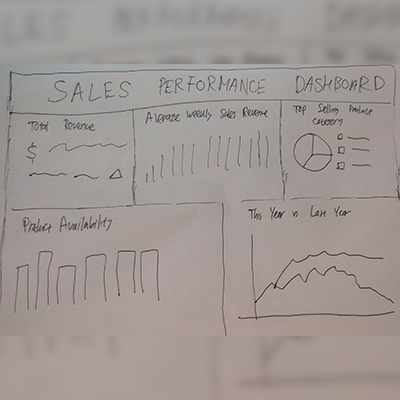 SALES PERFORMANCE DASHBOARD
Total Revenue
$
Average Weekly Sales Revenue
Top Selling Produce
Category
Product Availability
This Year vs Last Year